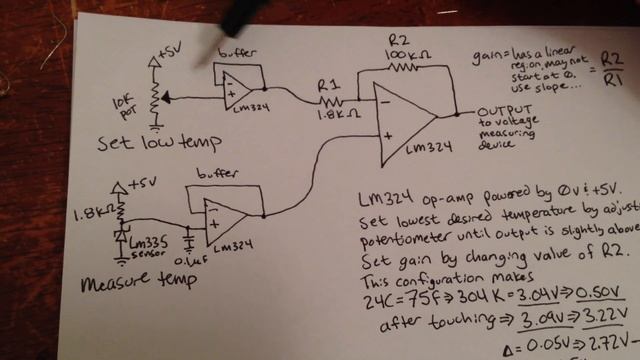 +5V
10K
POT
Set low temp
buffer
-
+
LM324
R1
1.8KΩ
R2
100KΩ
-
+
LM324
OUTPUT
to voltage
measuring
device
gain = has a linear
region, may not
start at 0.
use slope...
= R2
R1
+5V
1.8KΩ
LM335
sensor
0.1uf
Measure temp
buffer
-
+
LM324
LM324 op-amp powered by 0V & +5V.
Set lowest desired temperature by
potentiometer until output is slightly above
Set gain by changing value of R2.
This configuration makes
24C=75f⇒304K=3.04V⇒0.50V
after touching⇒3.09V⇒3.22V
Δ=0.05V⇒2.72V